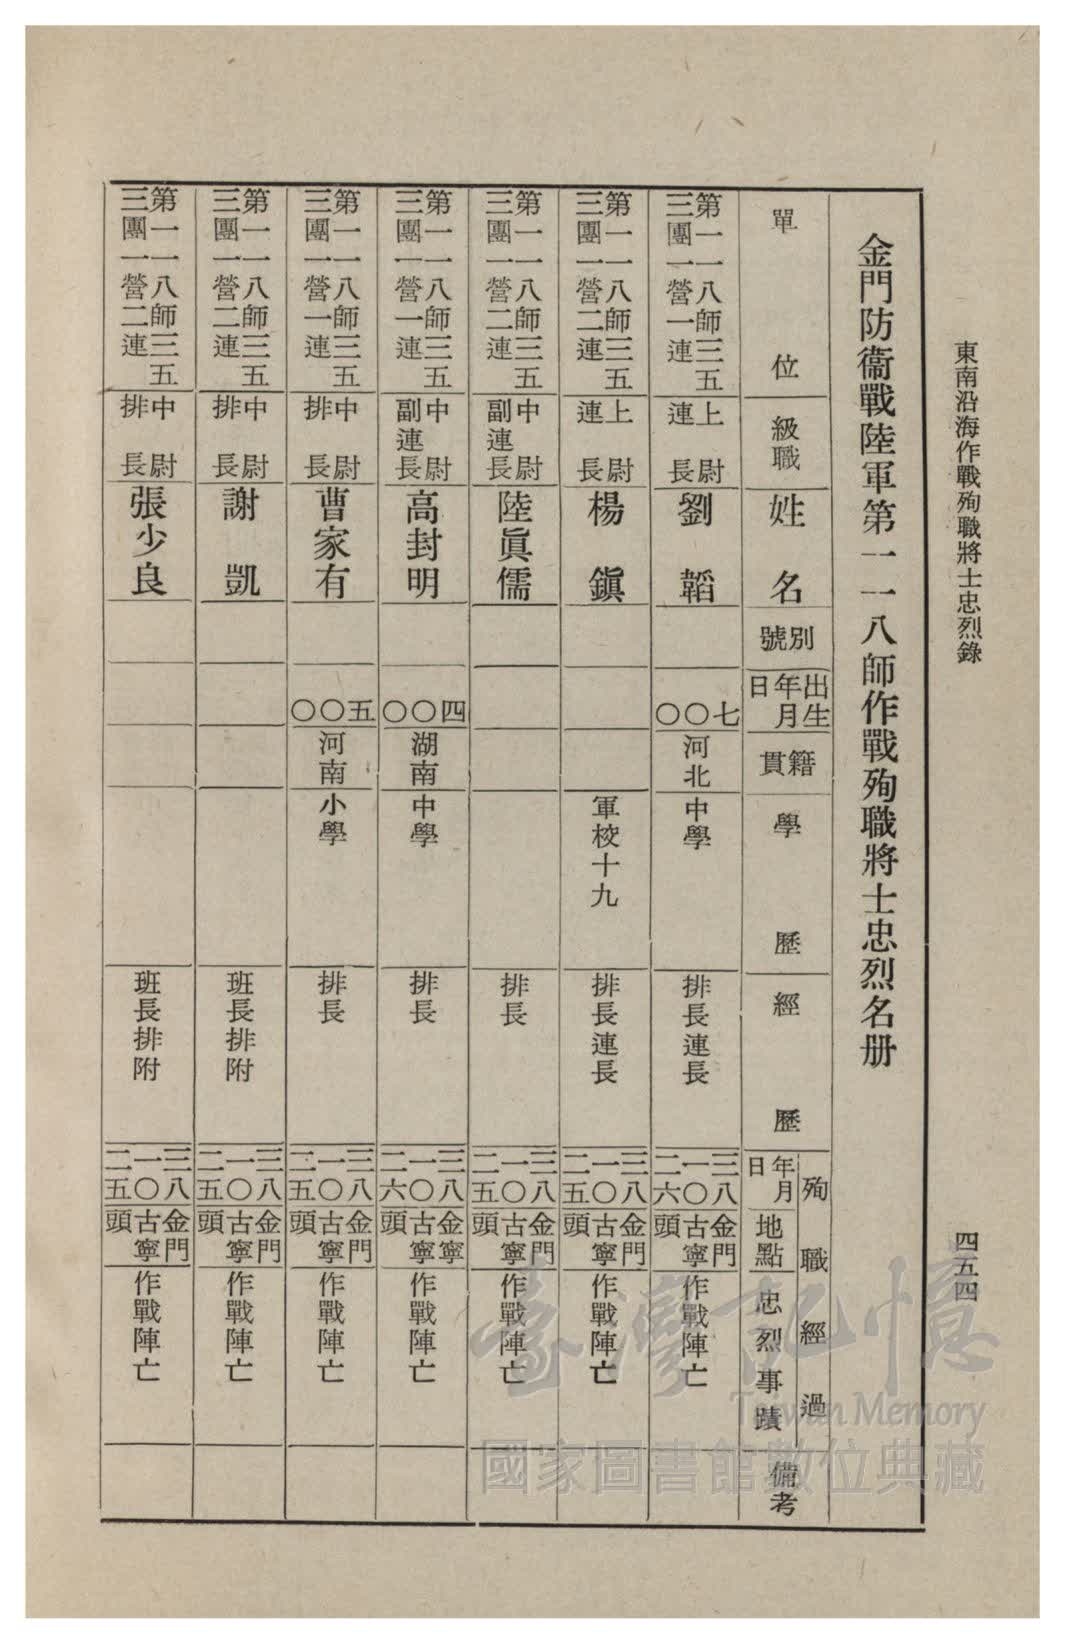 東南沿海作戰殉職將士忠烈錄
四五四
金門防衞戰陸軍第一一八師作戰殉職將士忠烈名册
單位
級職
姓名
別號
出生年月日
籍貫
學歷
經歷
殉職經過
年月日
地點
忠烈事蹟
備考
第一一八師三五三團一營一連
上尉連長
劉韜
七〇〇〇
河北
中學
排長連長
三八一〇二六
金門古寧頭
作戰陣亡
第一一八師三五三團一營二連
上尉連長
楊鎭
軍校十九
排長連長
三八一〇二五
金門古寧頭
作戰陣亡
第一一八師三五三團一營二連
中尉副連長
陸眞儒
排長
三八一〇二五
金門古寧頭
作戰陣亡
第一一八師三五三團一營一連
中尉副連長
高封明
四〇〇〇
湖南
中學
排長
三八一〇二六
金寧古寧頭
作戰陣亡
第一一八師三五三團一營一連
中尉排長
曹家有
五〇〇〇
河南
小學
排長
三八一〇二五
金門古寧頭
作戰陣亡
第一一八師三五三團一營二連
中尉排長
謝凱
班長排附
三八一〇二五
金門古寧頭
作戰陣亡
第一一八師三五三團一營二連
中尉排長
張少良
班長排附
三八一〇二五
金門古寧頭
作戰陣亡
臺灣記憶
Taiwan Memory
國家圖書館數位典藏